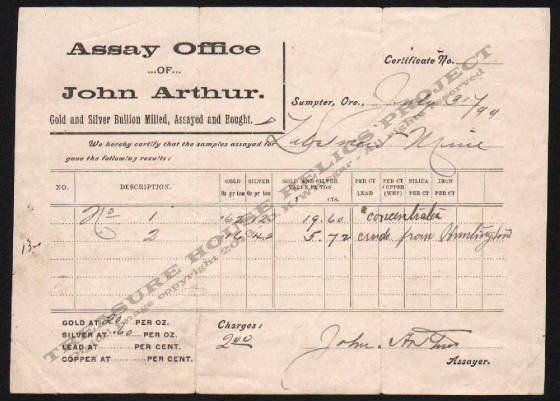 Assay Office
...OF...
John Arthur.
Gold and Silver Bullion Milled, Assayed and Bought.
Certificate No.
Sumpter, Ore., July 31 / 99
We hereby certify that the samples assayed for Mine
gave the following results:
NO. DESCRIPTION. GOLD Oz pr ton SILVER Oz pr ton GOLD AND SILVER VALUE Pr TON CTS. PER CT LEAD PER CT COPPER (WET) SILICA PER CT IRON PER CT
No 1 .62 12 19.60 concentrates
2 .16 4.2 5.72 crude from Huntington
13
GOLD AT 20 PER OZ.
SILVER AT .60 PER OZ.
LEAD AT PER CENT.
COPPER AT PER CENT.
Charges:
2.00
John Arthur
Assayer.
TREASURE HOUSE RELICS PROJECT